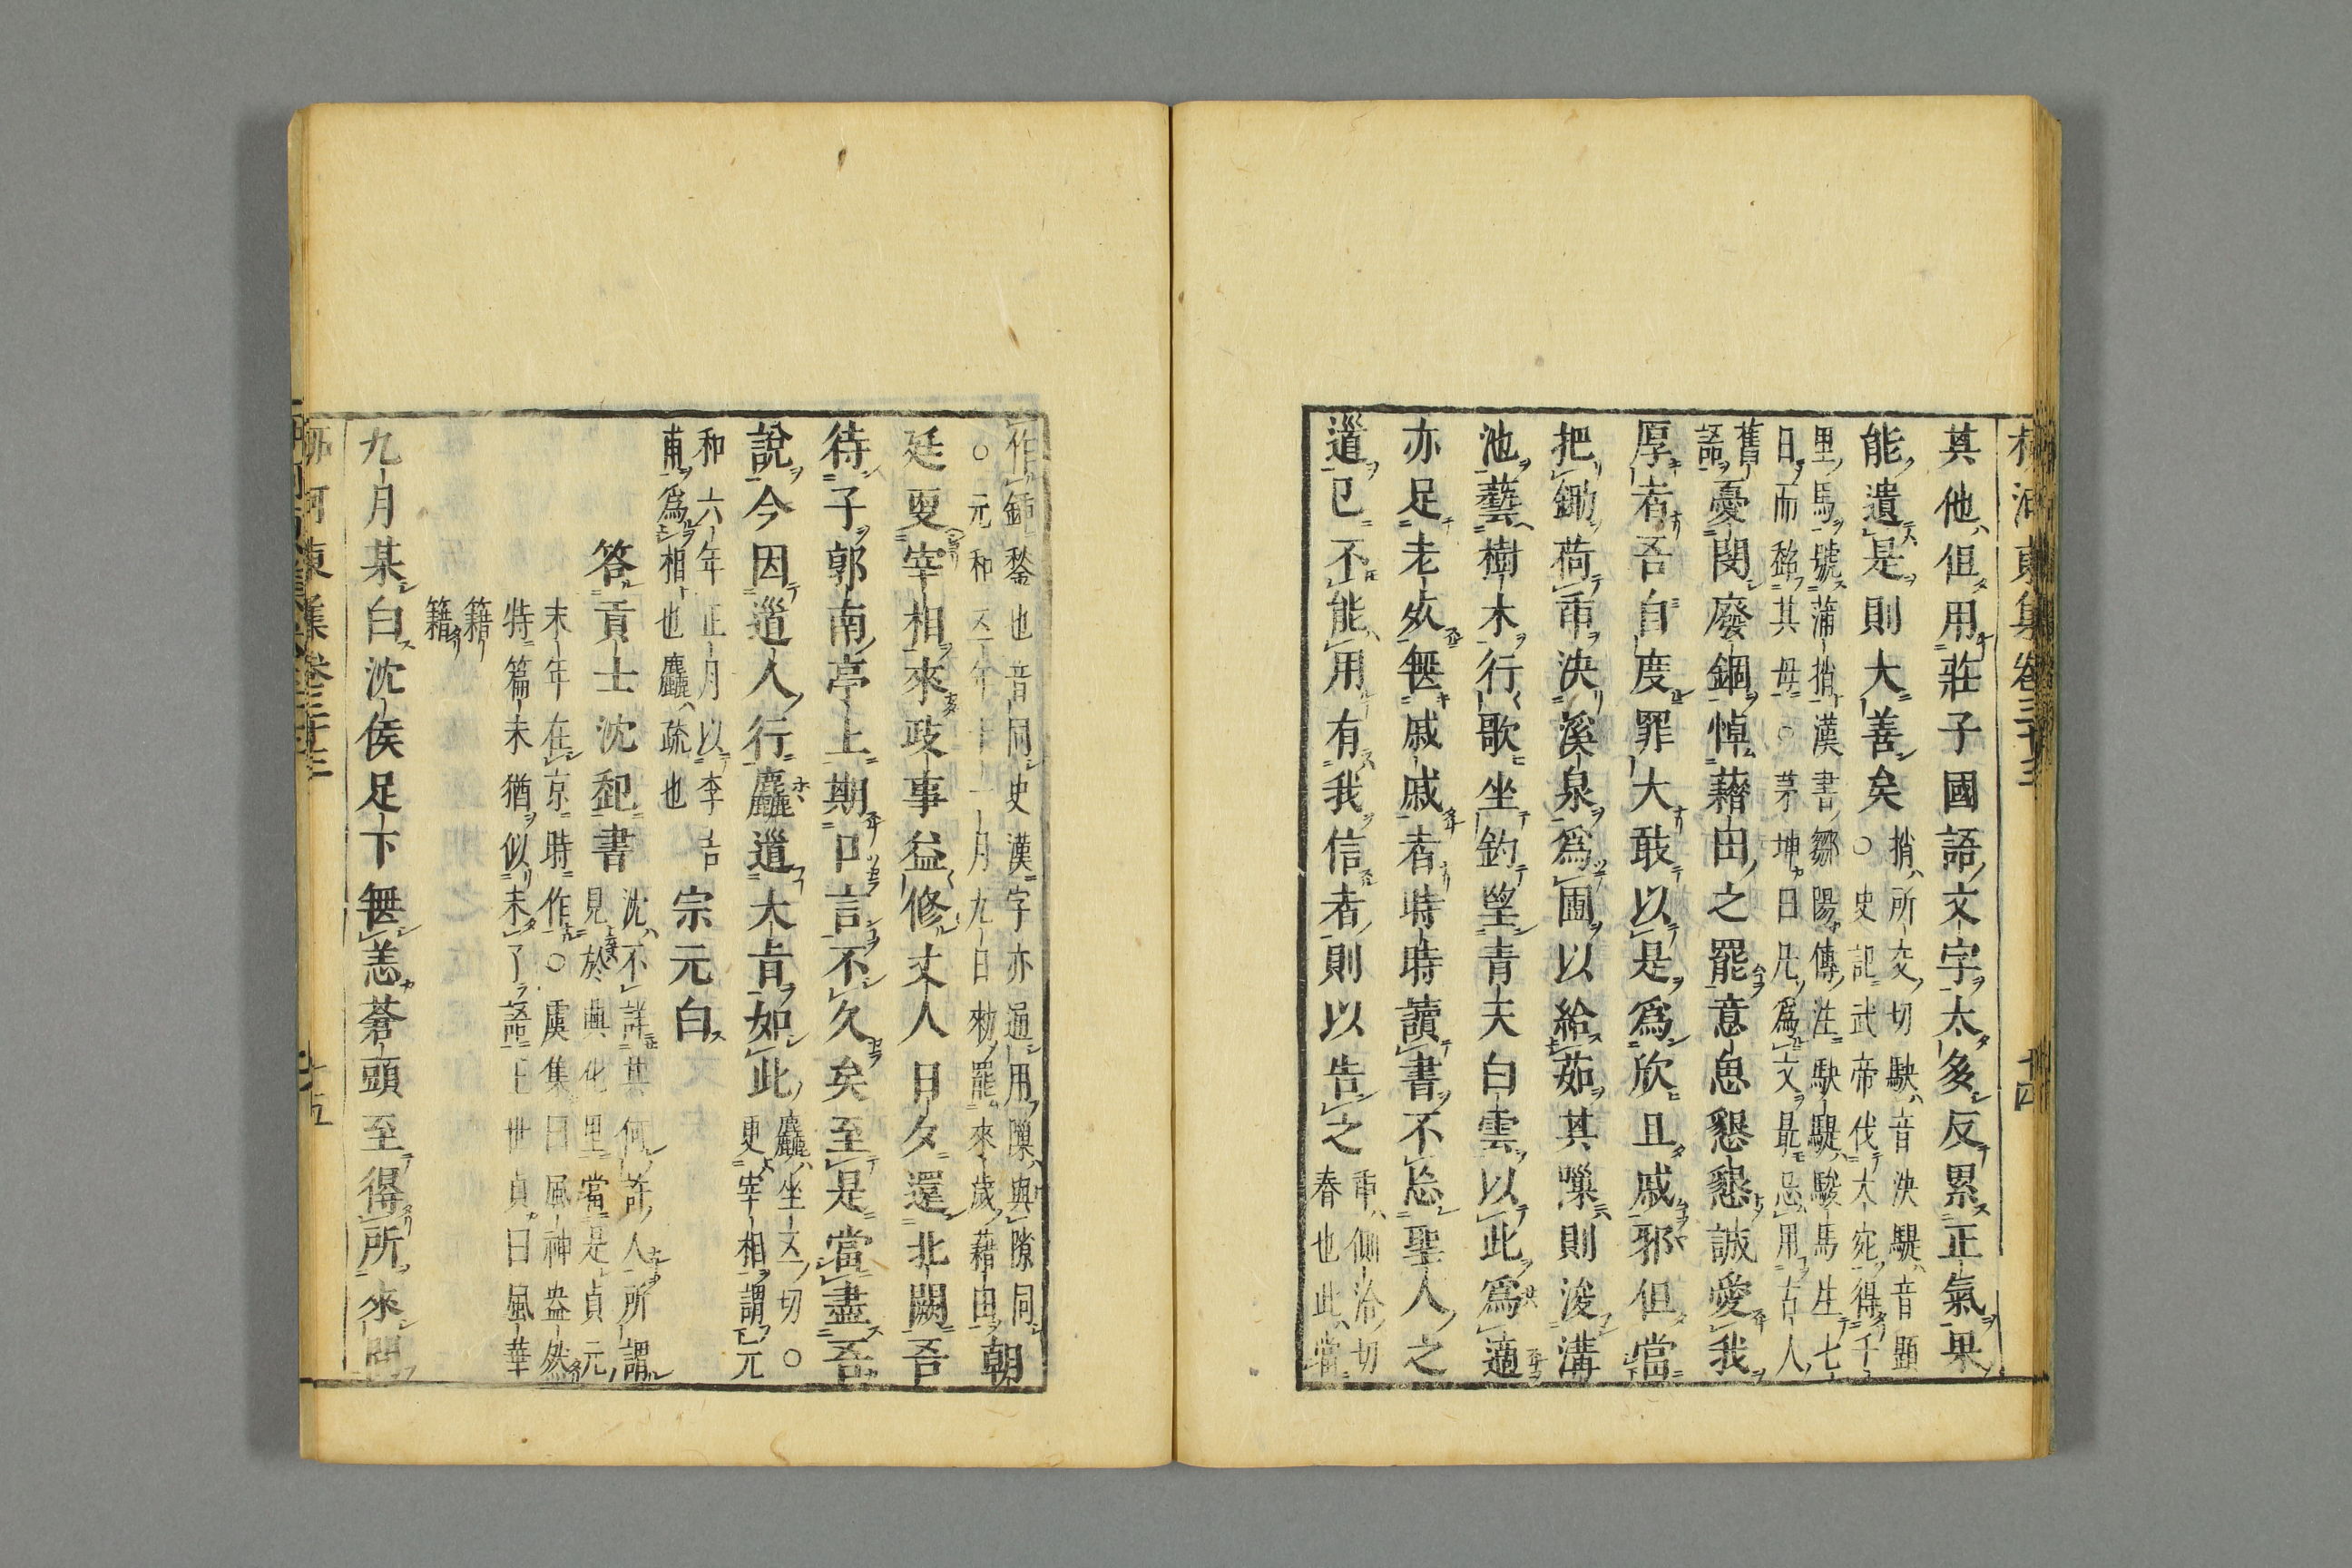 柳河東集卷三十三
十四
其他但用莊子國語文字太多反累正氣果
能遺是則大善矣
捎所交切駃音決騠音題
○史記武帝伐大宛得千
里馬號蒲捎漢書鄒陽傳注駃騠駿馬生七
日而超其母○茅坤曰凡爲文最忌用古人
舊
語
憂閔廢錮悼籍田之罷意思懇懇誠愛我
厚者吾自度罪大敢以是爲欣且戚邪但當
把鋤荷臿決溪泉爲圃以給茹其隟則浚溝
池藝樹木行歌坐釣望青天白雲以此爲適
亦足老死無戚戚者時時讀書不忘聖人之
道已不能用有我信者則以告之
臿側洽切
春也此當
作鍤鍫也音同史漢字亦通用隟與隙同
○元和五年十一月九日勑罷來歲藉田
朝
廷更宰相來政事益修丈人日夕還北闕吾
待子郭南亭上期口言不久矣至是當盡吾
說今因道人行麤道大旨如此
麤坐五切○
更宰相謂元
和六年正月以李吉
甫爲相也麤疏也
宗元白
答貢士沈起書
沈不詳其何許人所謂
見於興化里當是貞元
末年在京時作○虞集曰風神盎然
特篇末猶似未了語王世貞曰風華
籍
籍
九月某白沈侯足下無恙蒼頭至得所來問
柳河東集卷三十三
十五